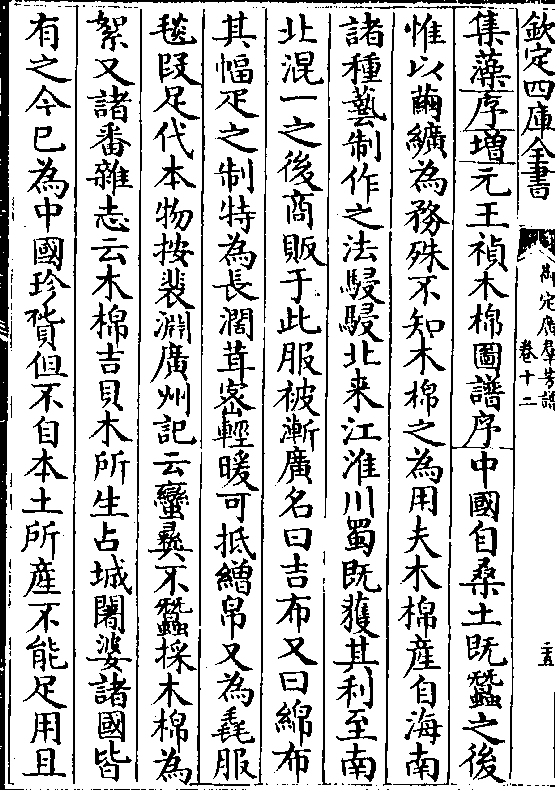 欽定四庫全書
御定廣羣芳譜
卷十二
二五
集藻序增元王禎木棉圖譜序中國自桑土既蠶之後
惟以繭纊為務殊不知木棉之為用夫木棉產自海南
諸種藝制作之法駸駸北来江淮川蜀既獲其利至南
北混一之後商販于此服被漸廣名曰吉布又曰綿布
其幅疋之制特為長濶茸宻輕暖可抵繒帛又為毳服
毯段足代本物按裴淵廣州記云蠻彛不蠶採木棉為
絮又諸番雜志云木棉吉貝木所生占城闍婆諸國皆
有之今已為中國珍貨但不自本土所產不能足用且